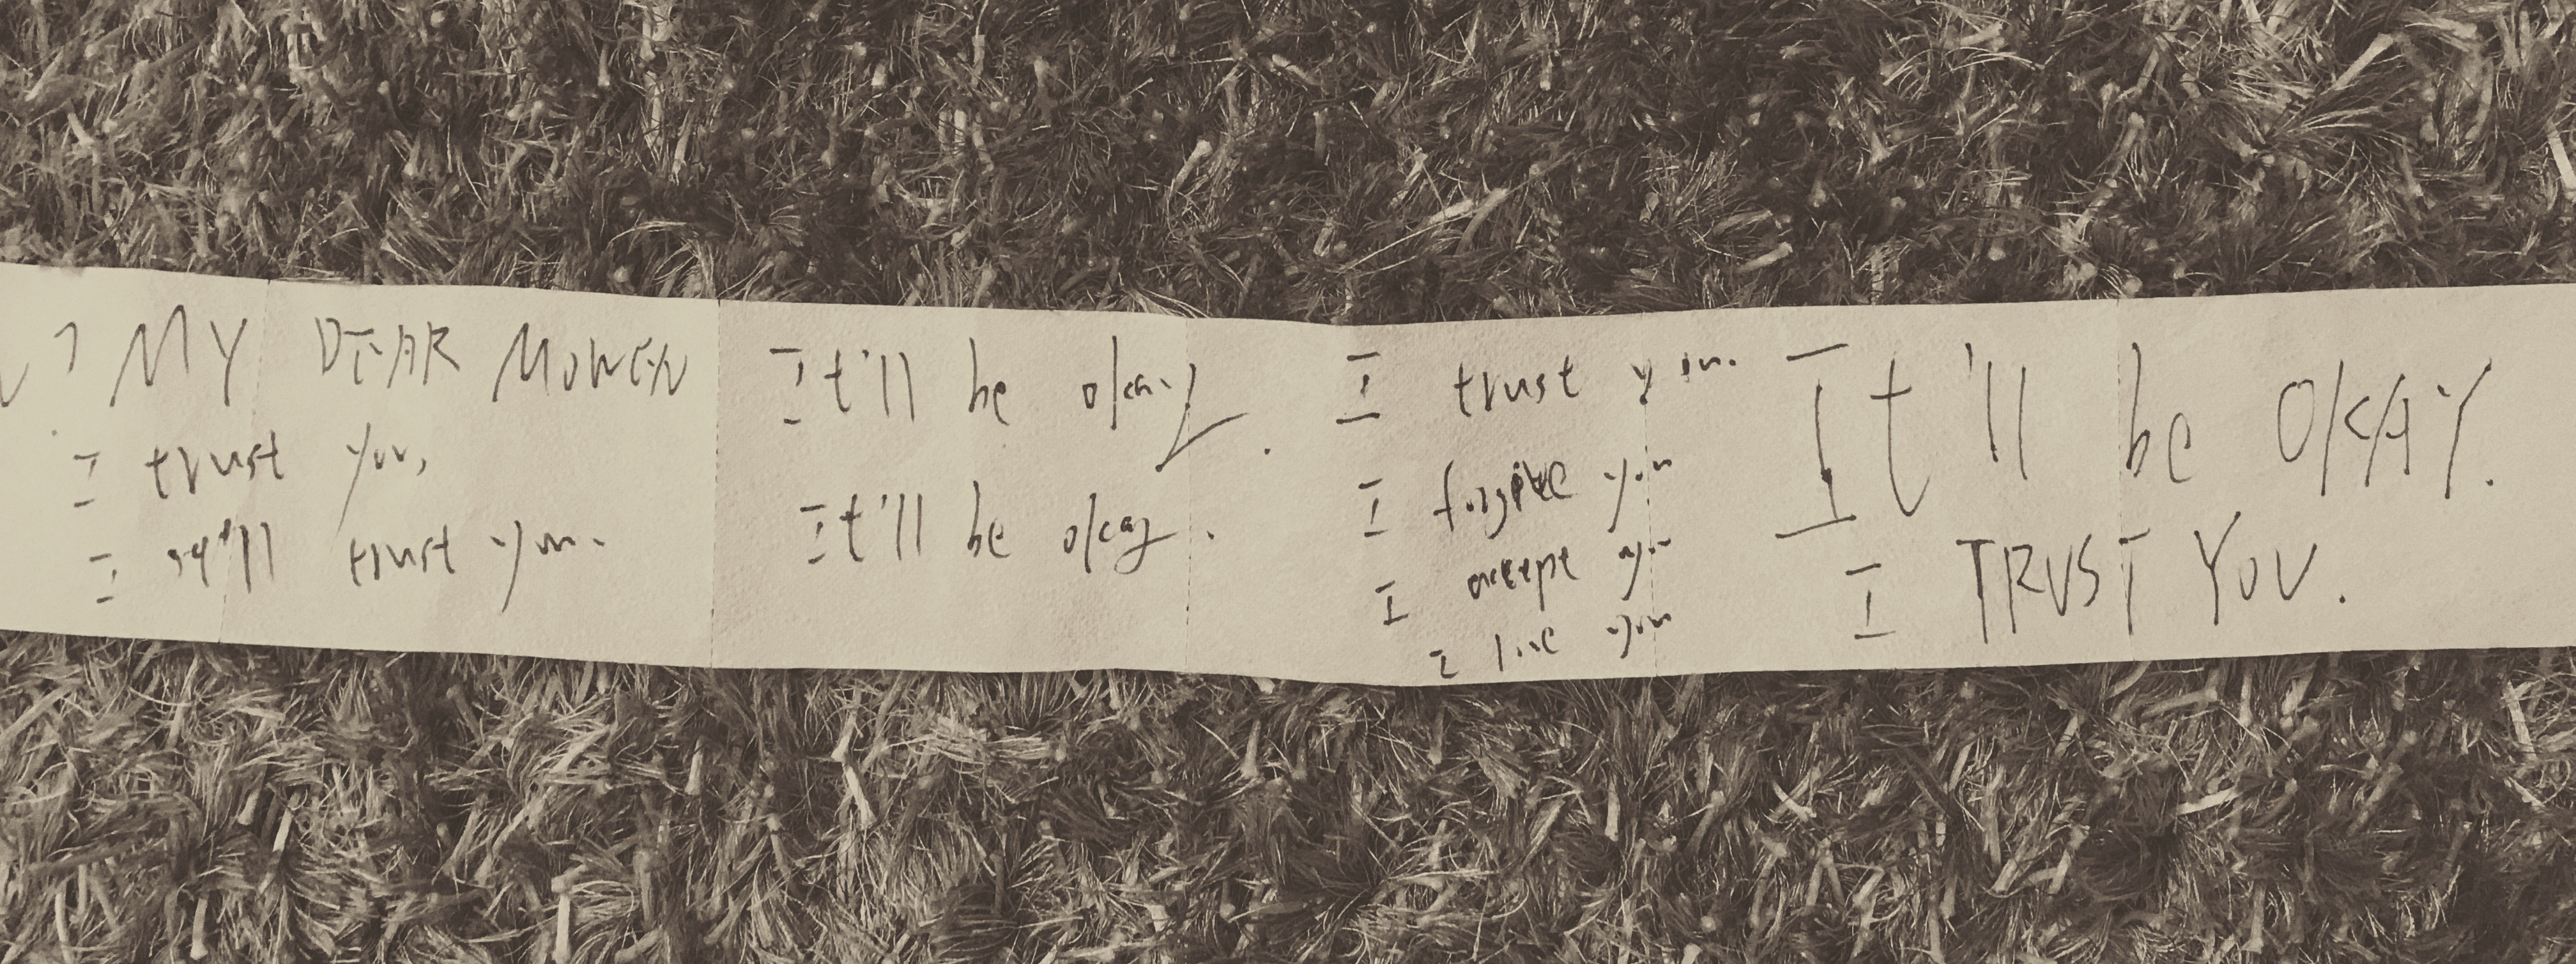 MY DEAR MOWEN
I trust you,
I still trust you.
It'll be okay.
It'll be okay.
I trust you.
I forgive you
I accept you
I love you
It'll be OKAY.
I TRUST YOU.